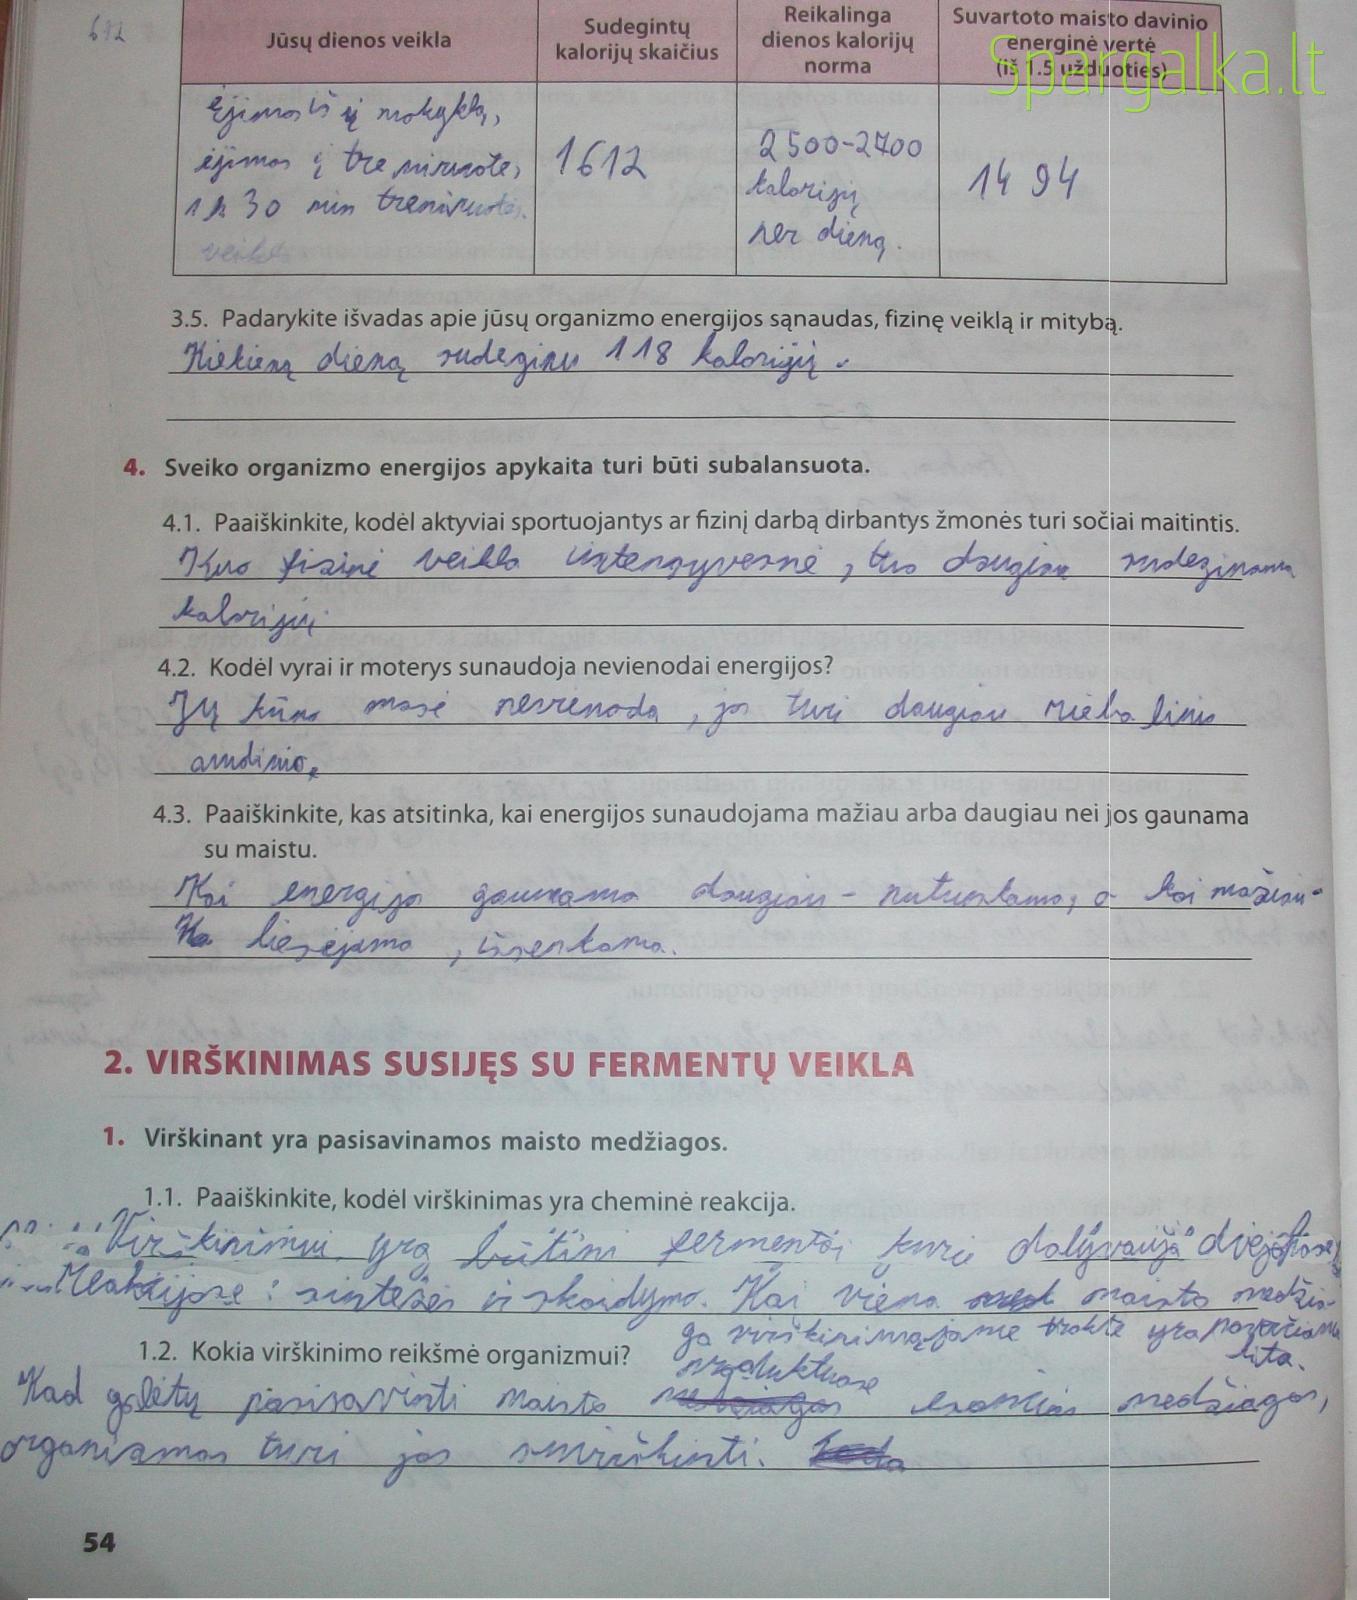 612
Jūsų dienos veikla
Sudegintų
kalorijų skaičius
Reikalinga
dienos kalorijų
norma
Suvartoto maisto davinio
energinė vertė
(iš 1.5 užduoties)
Spargalka.lt
Ėjimas iš į mokyklą,
ėjimas į treniruotę,
1 h 30 min treniruotės.
veikla
1612
2500-2700
kalorijų
per dieną.
1494
3.5. Padarykite išvadas apie jūsų organizmo energijos sąnaudas, fizinę veiklą ir mitybą.
Kiekieną dieną sudeginu 118 kalorijų.
4. Sveiko organizmo energijos apykaita turi būti subalansuota.
4.1. Paaiškinkite, kodėl aktyviai sportuojantys ar fizinį darbą dirbantys žmonės turi sočiai maitintis.
Kuo fizinė veikla intensyvesnė, tuo daugiau sudeginama
kalorijų.
4.2. Kodėl vyrai ir moterys sunaudoja nevienodai energijos?
Jų kūno masė nevienoda, jos turi daugiau riebalinio
audinio.
4.3. Paaiškinkite, kas atsitinka, kai energijos sunaudojama mažiau arba daugiau nei jos gaunama
su maistu.
Kai energijos gaunama daugiau - nutunkama, o kai mažiau -
liesėjama, išsenkama.
2. VIRŠKINIMAS SUSIJĘS SU FERMENTŲ VEIKLA
1. Virškinant yra pasisavinamos maisto medžiagos.
1.1. Paaiškinkite, kodėl virškinimas yra cheminė reakcija.
Virškinimui yra būtini fermentai kurie dalyvauja dvejopose
reakcijose: sintezės ir skaidymo. Kai viena maisto medžia-
ga virškinimajame trakte yra paverčiama
kita.
1.2. Kokia virškinimo reikšmė organizmui?
Kad galėtų pasisavinti maisto produktuose esančias medžiagas,
organizmas turi jas suvirškinti.
54